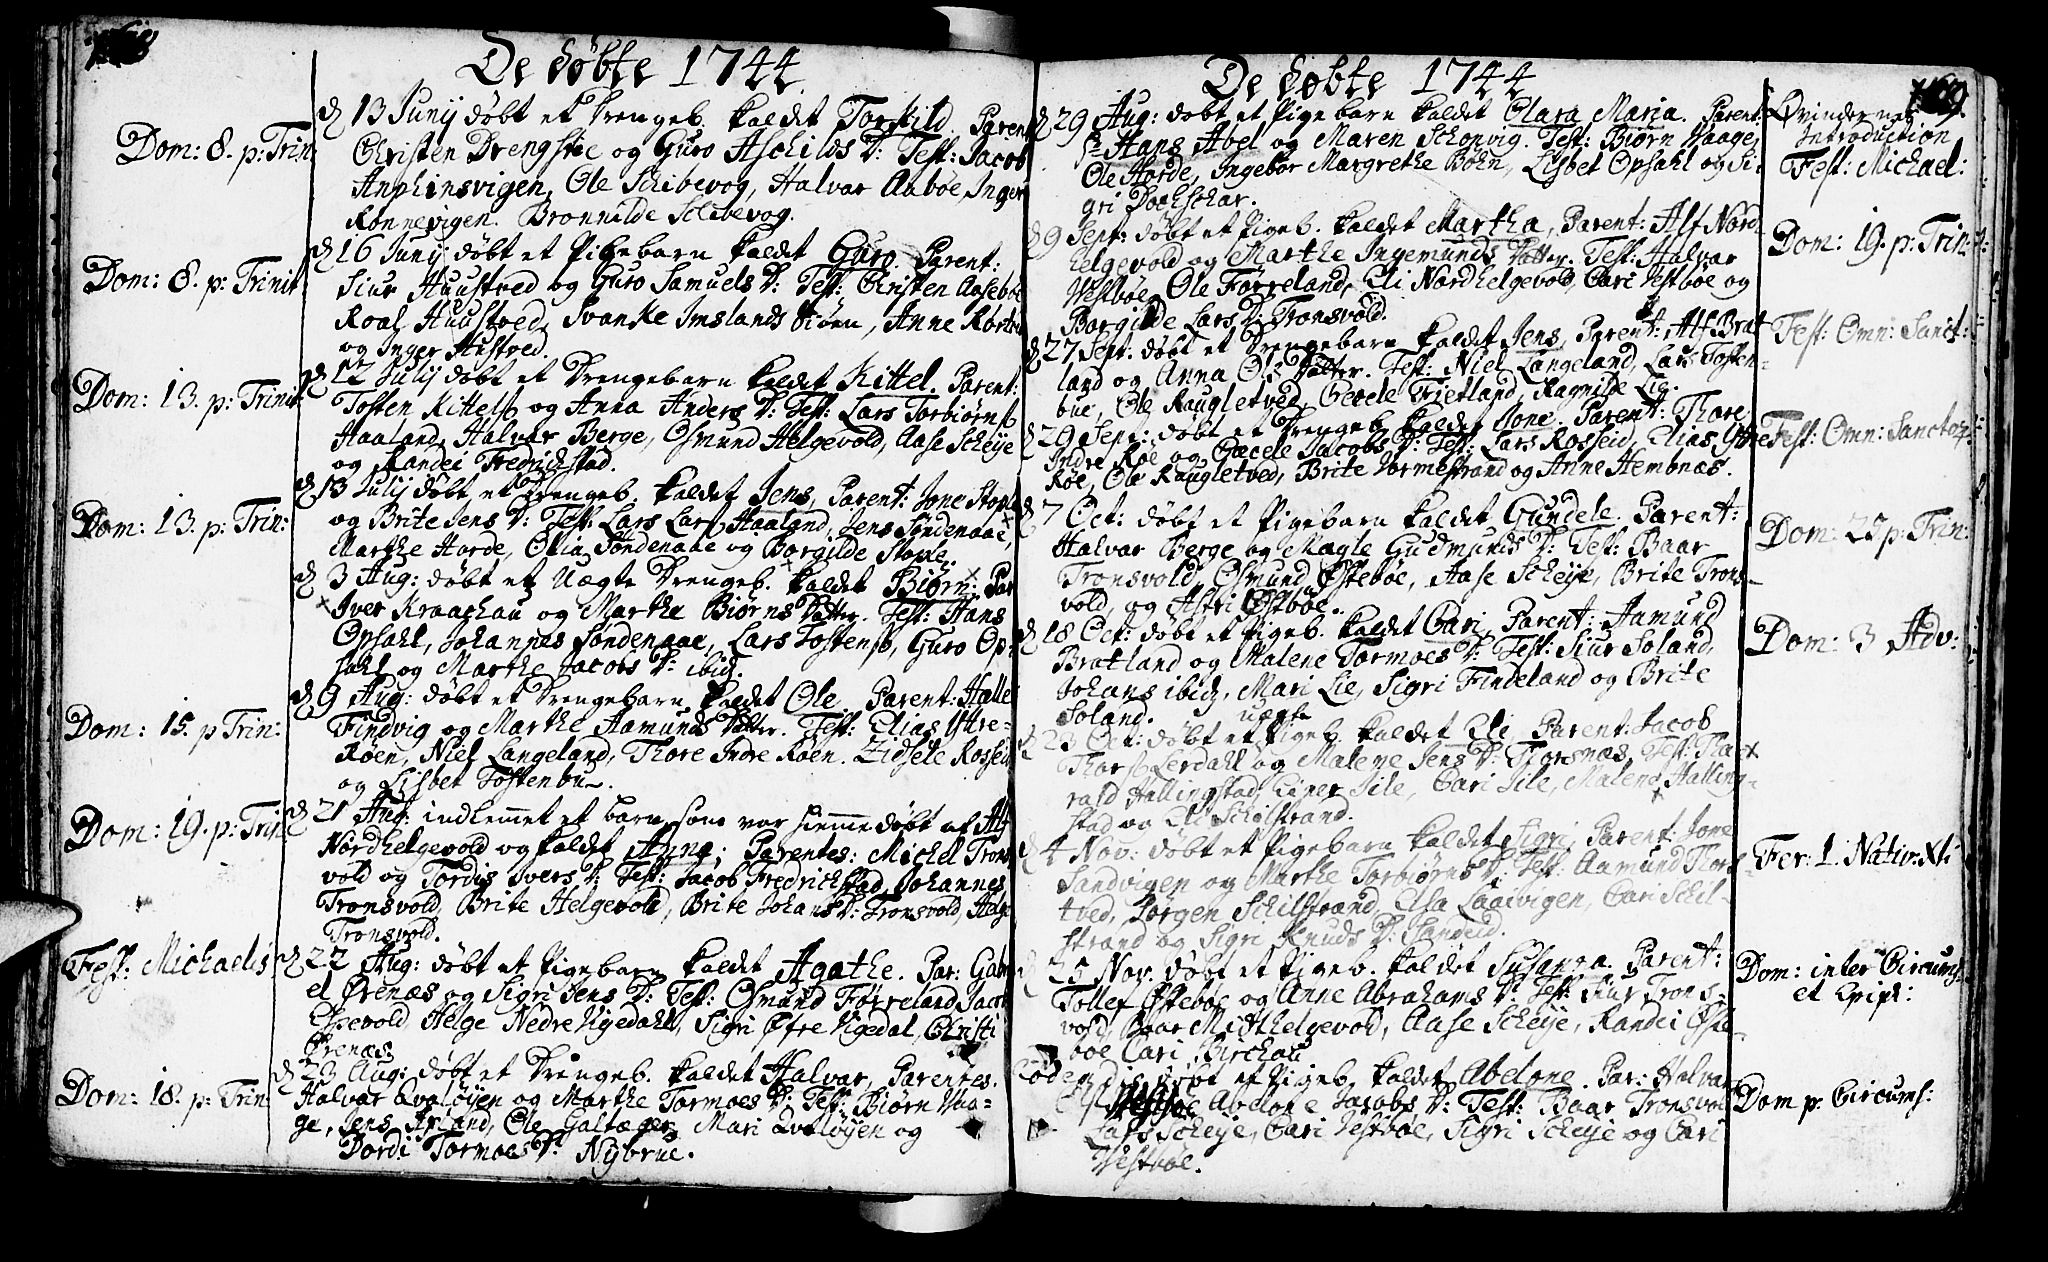 168
De døbte 1744
Dom: 8. p: Trin:
d 13 Junij døbt et Drengeb. kaldet Torkild. Parent
Christen Drengstoe og Guro Aschilds D: Test: Jacob
Anphinsvigen, Ole Schibevog, Halvar Aabøe, Inger
Rønnevigen. Bronnilde Schibevog.
Dom: 8. p: Trinit
d 16 Junij døbt et Pigebarn kaldet Guro Parent:
Siur Huustved og Guro Samuels D: Test: Christen Aasebøe
Roal Huustved, Svanke Imslands
og Inger Hustved.
Dom: 13. p: Trinit:
d 12 Julij døbt et Drengebarn kaldet Kittel. Parent:
Tosten Kittels og Anna Anders D: Test: Lars Torbiørns
Haaland, Halvar Berge, Osmund Helgevold, Aase Scheije
og Randei Fredrichstad.
Dom: 13. p: Trin:
d 13 Julij døbt et Drengeb. kaldet Jens, Parent: Jone Stople
og Brite Jens D: Test: Lars Lars Haaland, Jens Søndenaae,
Marthe Horde, Olia Søndenaae og Borgilde Stople.
d 3 Aug: døbt et Uægte Drengeb. kaldet Biørn: Par
Iver Kraachau og Marthe Biørns Datter. Test: Hans
Opsahl, Johannes Søndenaae, Lars Tostens, Guro Op-
sahl og Marthe Jacobs D: ibid.
Dom: 15. p Trin:
d 9 Aug: døbt et Drengebarn kaldet Ole. Parent: Halle
Findvig og Marthe Aamunds Datter. Test: Elias Yttre-
Røen, Niel Langeland, Thore Indre Røen. Zidsele Rosseid
og Lisbet Tostenbu.
Dom: 19. p: Trin:
d 21 Aug: indlemmet et barn, som var hiemmedøbt af Alf
Nordhelgevold og kaldet Anna; Parentes: Michel Trons
vold og Tordis Ivers D: Test: Jacob Fredrichstad, Johannes
Tronsvold, Brite Helgevold, Brite Johans D: Tronsvold, Helge
Tronsvold.
Fest: Michaelis
d 22 Aug: døbt et Pigebarn kaldet Agathe. Par: Gabri
el Ørenæs og Sigri Jens D: Test: Osmund Førreland, Jacob
Espevold, Helge Nedre Vigedahl, Sigri Øfre Vigedal, Christi
Ørenæs.
Dom: 18. p: Trin:
d 23 Aug: døbt et Drengeb. kaldet Halvar, Parentes.
Halvar Qvaløyen og Marthe Tormoes D: Test: Biørn Vaa-
ge, Jens Ørland, Ole Galtager, Mari Qvaløyen og
Dordi Tormoes D: Nybrue.
169
De døbte 1744
Qvindernes
Introduction
d 29 Aug: døbt et Pigebarn kaldet Clara Maria. Parent:
Sr Hans Abel og Maren Schonvig. Test: Biørn Vaage,
Ole Horde, Ingebor Margrethe Bohn, Lisbet Opsahl og Si-
gri Dochschar.
Fest: Michael:
d 9 Sept: døbt et Pigeb. kaldet Martha, Parent: Alf Nord-
helgevold og Marthe Ingemunds Datter. Test: Halvar
Vestbøe, Ole Førreland, Eli Nordhelgevold, Cari Vestbøe og
Borgilde Lars D: Tronsvold.
Dom: 19. p: Trin:
d 27 Sept: døbt et Drengebarn kaldet Jens, Parent: Alf Brat
land og Anna Ols Datter. Test: Niel Langeland, Lars Tosten-
bue, Ole Raugletved, Cecele Frietland, Ragnilde Lie.
Fest: Omn: Sanct:
d 29 Sept: døbt et Drengeb. kaldet Jone, Parent: Thore
Indre Røe og Cecele Jacobs D: Test: Lars Rosseid, Elias Yttre
Røe, Ole Raugletved, Brite Vormestrand og Anne Hembnæs.
Fest: Omn: Sanctor:
d 7 Oct: døbt et Pigebarn kaldet Gundele. Parent:
Halvar Berge og Magle Gudmunds D: Test: Baar
Tronsvold, Osmund Østebøe, Aase Scheije, Brite Trons-
vold, og Astri Østbøe.
Dom: 23 p: Trin:
d 18 Oct: døbt et Pigeb. kaldet Cari, Parent: Aamund
Bratland og Malene Tormoes D: Test: Siur Soland,
Johans ibid, Mari Lie, Sigri Findeland og Brite
Soland.
Dom: 3 Adv:
uægte
d 23 Oct: døbt et Pigeb. kaldet Eli, Parent: Jacob
Thors Lerdahl og Malene Jens D: Thorsnæs, Test: Tha-
rald Hallingstad, Einer Sile, Cari Sile, Malene Halling-
stad og Eli Schilstrand.
d 4 Nov: døbt et Pigebarn kaldet Sigri, Parent: Jone
Sandvigen og Marthe Torbiørns D: Test: Aamund Thors-
tved, Jørgen Schilstrand, Elsa Laaivigen, Cari Schil-
strand og Sigri Knuds D: Sandeid.
Fer: 1. Nativ: Xti
d 25 Nov. døbt et Pigeb. kaldet Susanna. Parent:
Tollef Østebøe og Anne Abrahams D: Test: Siur Trons-
vold, Baar Midthelgevold, Aase Scheije, Randei Øste-
bøe Cari Birchau
Dom: inter Circums:
et Epiph:
Eodem die døbt et Pigeb. kaldet Abelone. Par: Halvar
Vestbøe Abelone Jacobs D: Test: Baar Tronsvold
Lars Scheije, Cari Vestbøe, Sigri Scheije og Cari
Vestbøe.
Dom p: Circums: